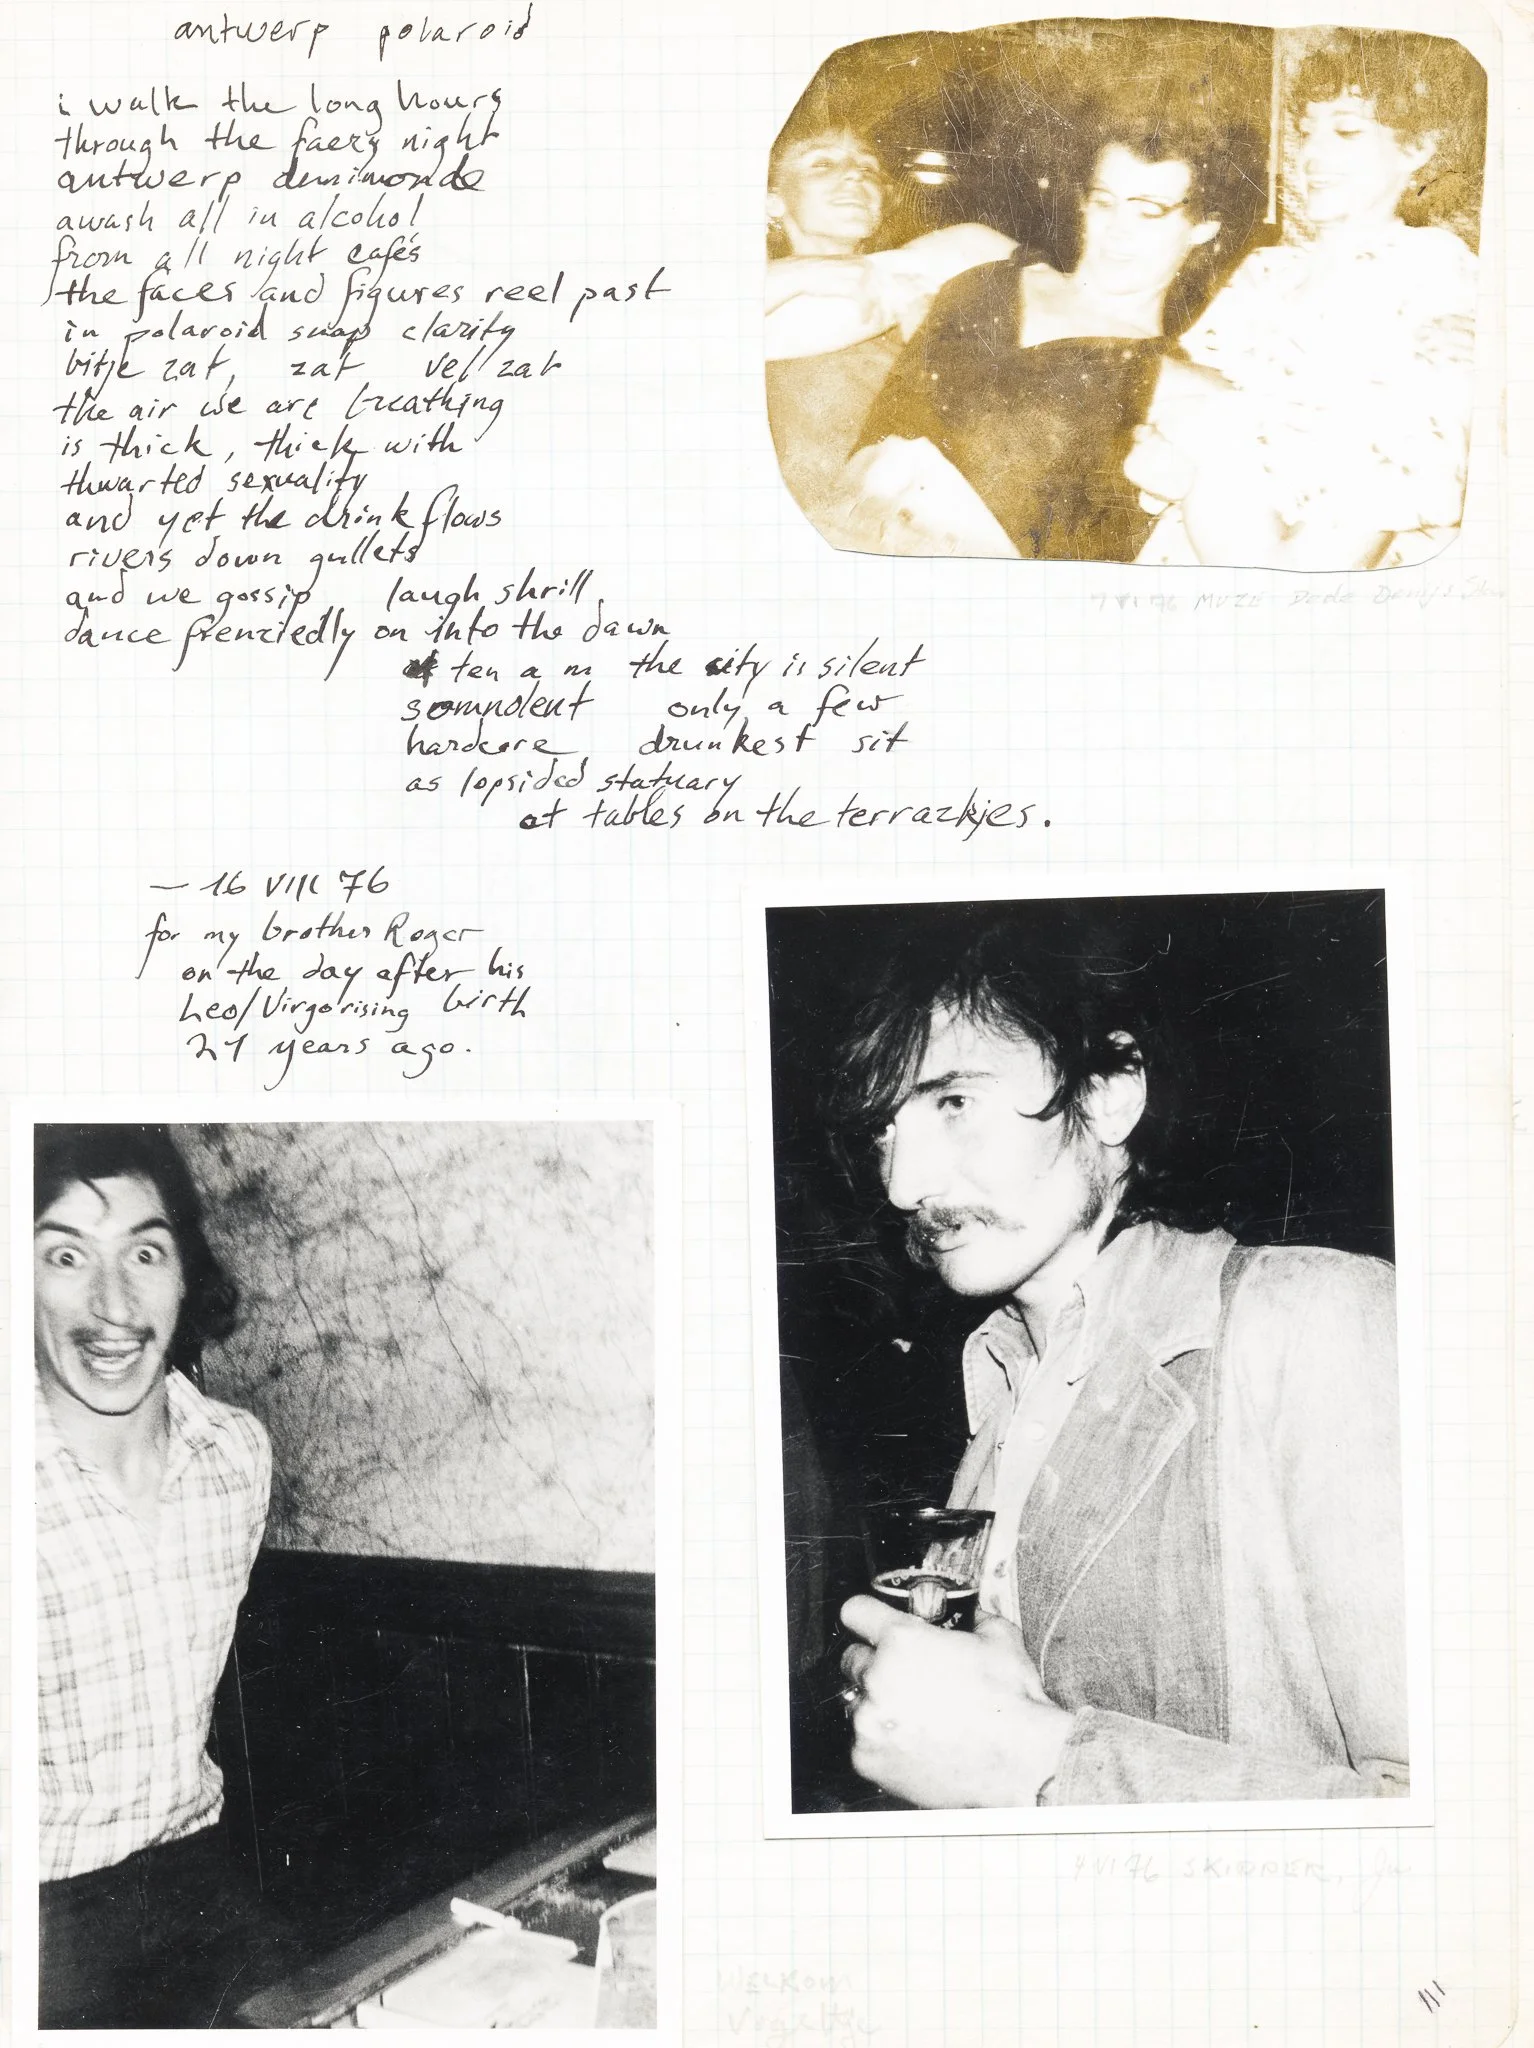 antwerp polaroid
i walk the long hours
through the faery night
antwerp demimonde
awash all in alcohol
from all night cafés
the faces and figures reel past
in polaroid snap clarity
bitje zat, zat vel zat
the air we are breathing
is thick, thick with
thwarted sexuality
and yet the drink flows
rivers down gullets
and we gossip laugh shrill
dance frenziedly on into the dawn
ten a m the city is silent
somnolent only a few
hardcore drunkest sit
as lopsided statuary
at tables on the terrazkjes.
— 16 VIII 76
for my brother Roger
on the day after his
Leo/Virgo rising birth
27 years ago.
7 VI 76 MUZE Dode
4 VI 76 SKIPPER,
WELKOM
111